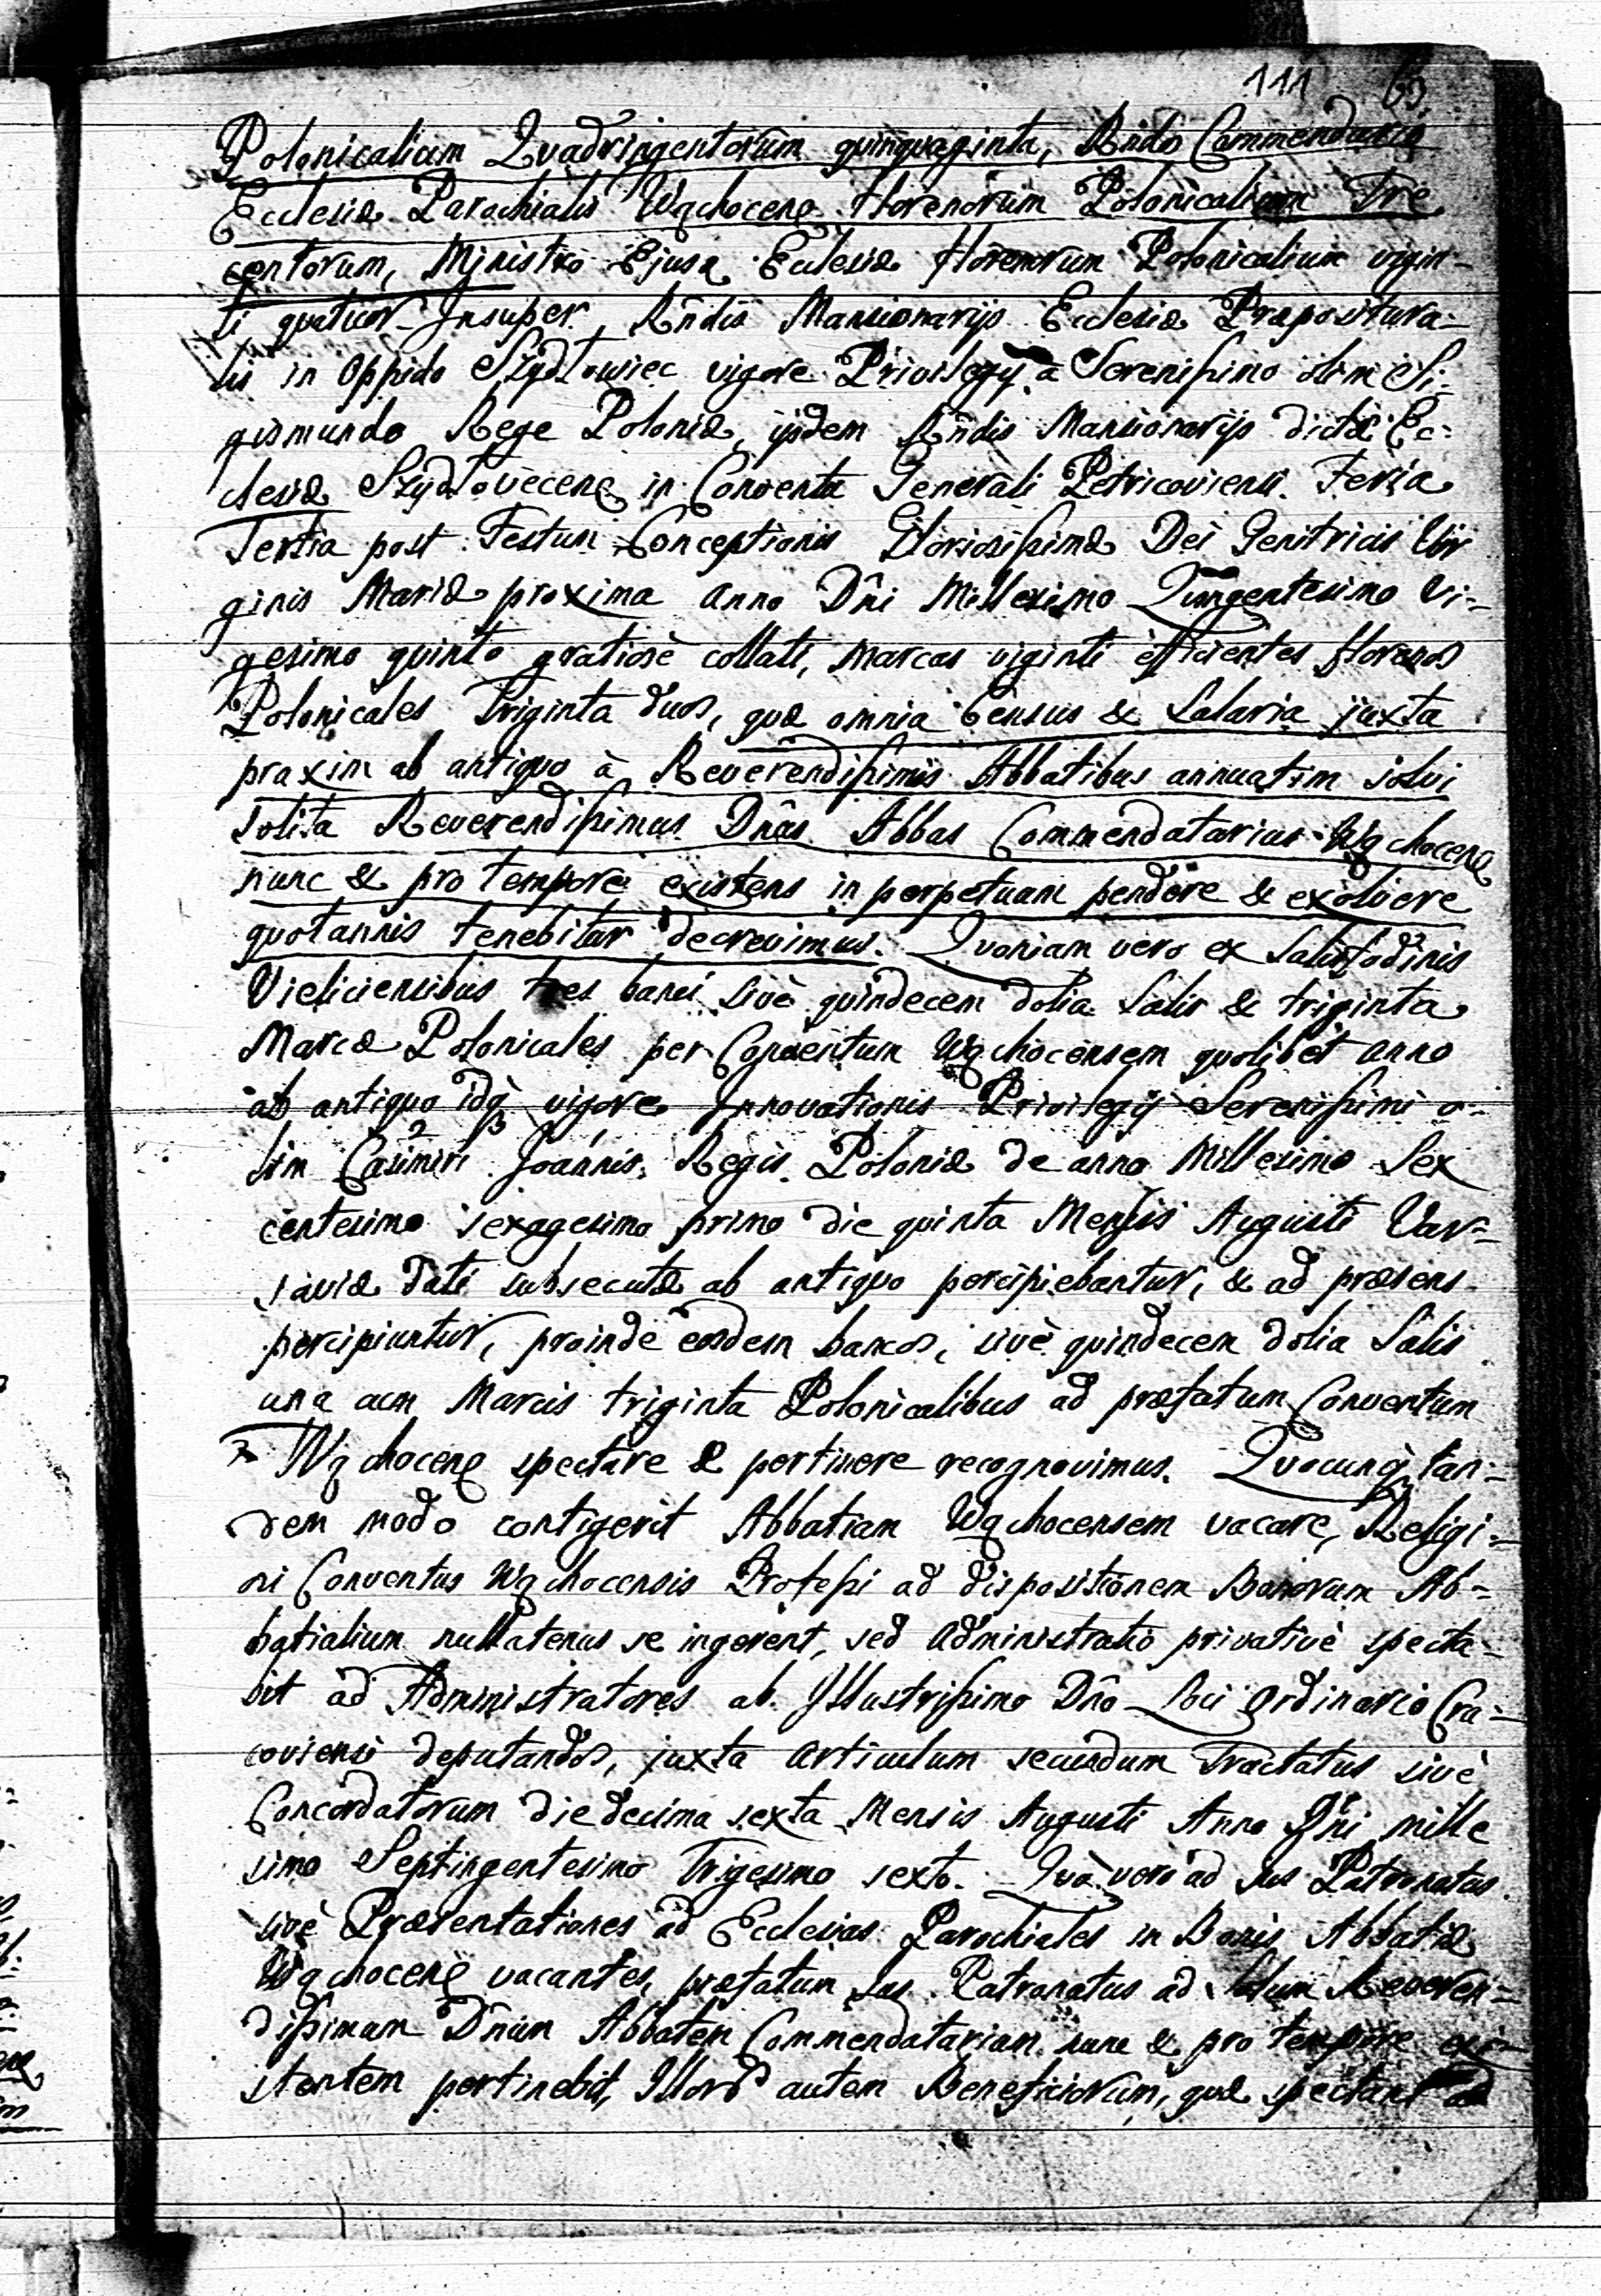 111 63
Polonicalium Quadringentorum quinquaginta, Rndo Commendario
Ecclesiæ Parochialis Wąchocenę Florenorum Polonicalium Tre
centorum, Ministro Ejusd Ecclesiæ Florenorum Polonicalium vigin-
ti quatuor. Insuper Rndis Mansionarijs Ecclesiæ Præpositura-
lis in Oppido Szydłowiec vigore Privilegij a Serenissimo olim Si-
gismundo Rege Poloniæ, ijsdem Rndis Mansionarijs dictæ Ec-
clesiæ Szydłovecenę in Conventu Generali Petricoviensi. Feria
Tertia post Festum Conceptionis Gloriosissimæ Dei Genitricis Vir
ginis Mariæ proxima Anno Dñi Millesimo Quingentesimo Vi-
gesimo quinto gratiosè collati, Marcas viginti èfficientes florenos
Polonicales Triginta duos, quæ omnia Census & Salaria juxta
praxim ab antiquo à Reverendissimis Abbatibus annuatim solvi
solita Reverendissimus Dñus Abbas Commendatarius Wąchocenę
nunc & pro tempore existens in perpetuum pendere & exolvere
quotannis tenebitur decrevimus. Quoniam vero ex Salisfodinis
Vieliciensibus tres banci sivè quindecem dolia Salis & triginta
Marcæ Polonicales per Conventum Wąchocensem quolibet anno
ab antiquo idq vigore Innovationis Privilegij Serenissimi o-
lim Casimiri 2 Joannis Regis Poloniæ de anno Millesimo Sex
centesimo sexagesimo primo die quinta Mensis Augusti Var-
saviæ dati subsecutæ ab antiquo percipiebantur, & ad præsens
percipiuntur, proinde eosdem bancos, sivè quindecem dolia Salis
una cum Marcis triginta Polonicalibus ad præfatum Conventum
Wąchocenę spectare & pertinere recognovimus. Quocunq tan-
dem modo contigerit Abbatiam Wąchocensem vacare, Religi-
osi Conventus Wąchocensis Professi ad dispositionem Bonorum Ab-
batialium nullatenus se ingerent, sed administratio privativè specta-
bit ad Administratores ab Illustrissimo Dño Loci Ordinario Cra-
coviensi deputandos, juxta articulum secundum Tractatus sivè
Concordatorum die decima sexta Mensis Augusti Anno Dñi mille
simo Septingentesimo Trigesimo sexto. Quò vero ad Jus Patronatus
sivè Præsentationes ad Ecclesias Parochiales in Bonis Abbatiæ
Wąchocenę vacantes, præfatum Jus Patronatus ad solum Reveren-
dissimum Dñum Abbatem Commendatarium nunc & pro tempore exi-
stentem pertinebit, Illorū autem Beneficiorum, quæ spectant ad